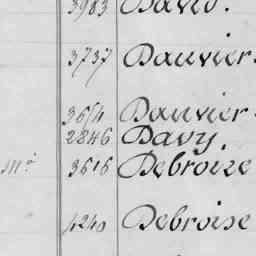 3983 David.
3737 Dauvier.
3654 Dauvier.
2846 Davy.
M.d 3616 Debroize
4240 Debroise